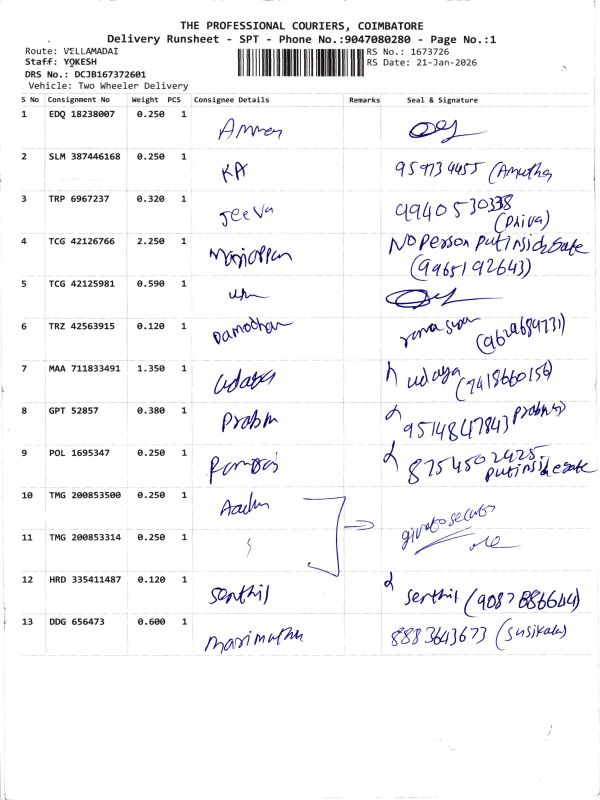 THE PROFESSIONAL COURIERS, COIMBATORE
Delivery Runsheet - SPT - Phone No.:9047080280 - Page No.:1
Route: VELLAMADAI
RS No.: 1673726
Staff: YOKESH
RS Date: 21-Jan-2026
DRS No.: DCJB167372601
Vehicle: Two Wheeler Delivery
S No Consignment No Weight PCS Consignee Details Remarks Seal & Signature
1 EDQ 18238007 0.250 1
2 SLM 387446168 0.250 1 KA (Amutha
3 TRP 6967237 0.320 1 Jeeva 9940530338
(Phiva)
4 TCG 42126766 2.250 1 No person put inside gate
(9965192643)
5 TCG 42125981 0.590 1
6 TRZ 42563915 0.120 1 Damodhar (9629689731)
7 MAA 711833491 1.350 1 udaya udaya (7418660156)
8 GPT 52857 0.380 1 Prabhu Prabhu
9514847843
9 POL 1695347 0.250 1 8754502425
put inside gate
10 TMG 200853500 0.250 1
11 TMG 200853314 0.250 1
12 HRD 335411487 0.120 1 Senthil Senthil (9087886644)
13 DDG 656473 0.600 1 Marimuthu 8883643673 (Susikala)